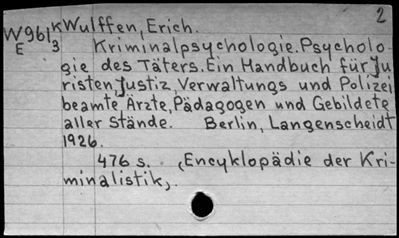 2
W961K Wulffen, Erich.
E 3 Kriminalpsychologie. Psycholo-
gie des Täters. Ein Handbuch für Ju
risten, Justiz, Verwaltungs und Polizei
beamte, Ärzte, Pädagogen und Gebildete
aller Stände. Berlin, Langenscheidt
1926.
476 s. (Encyklopädie der Kri-
minalistik).